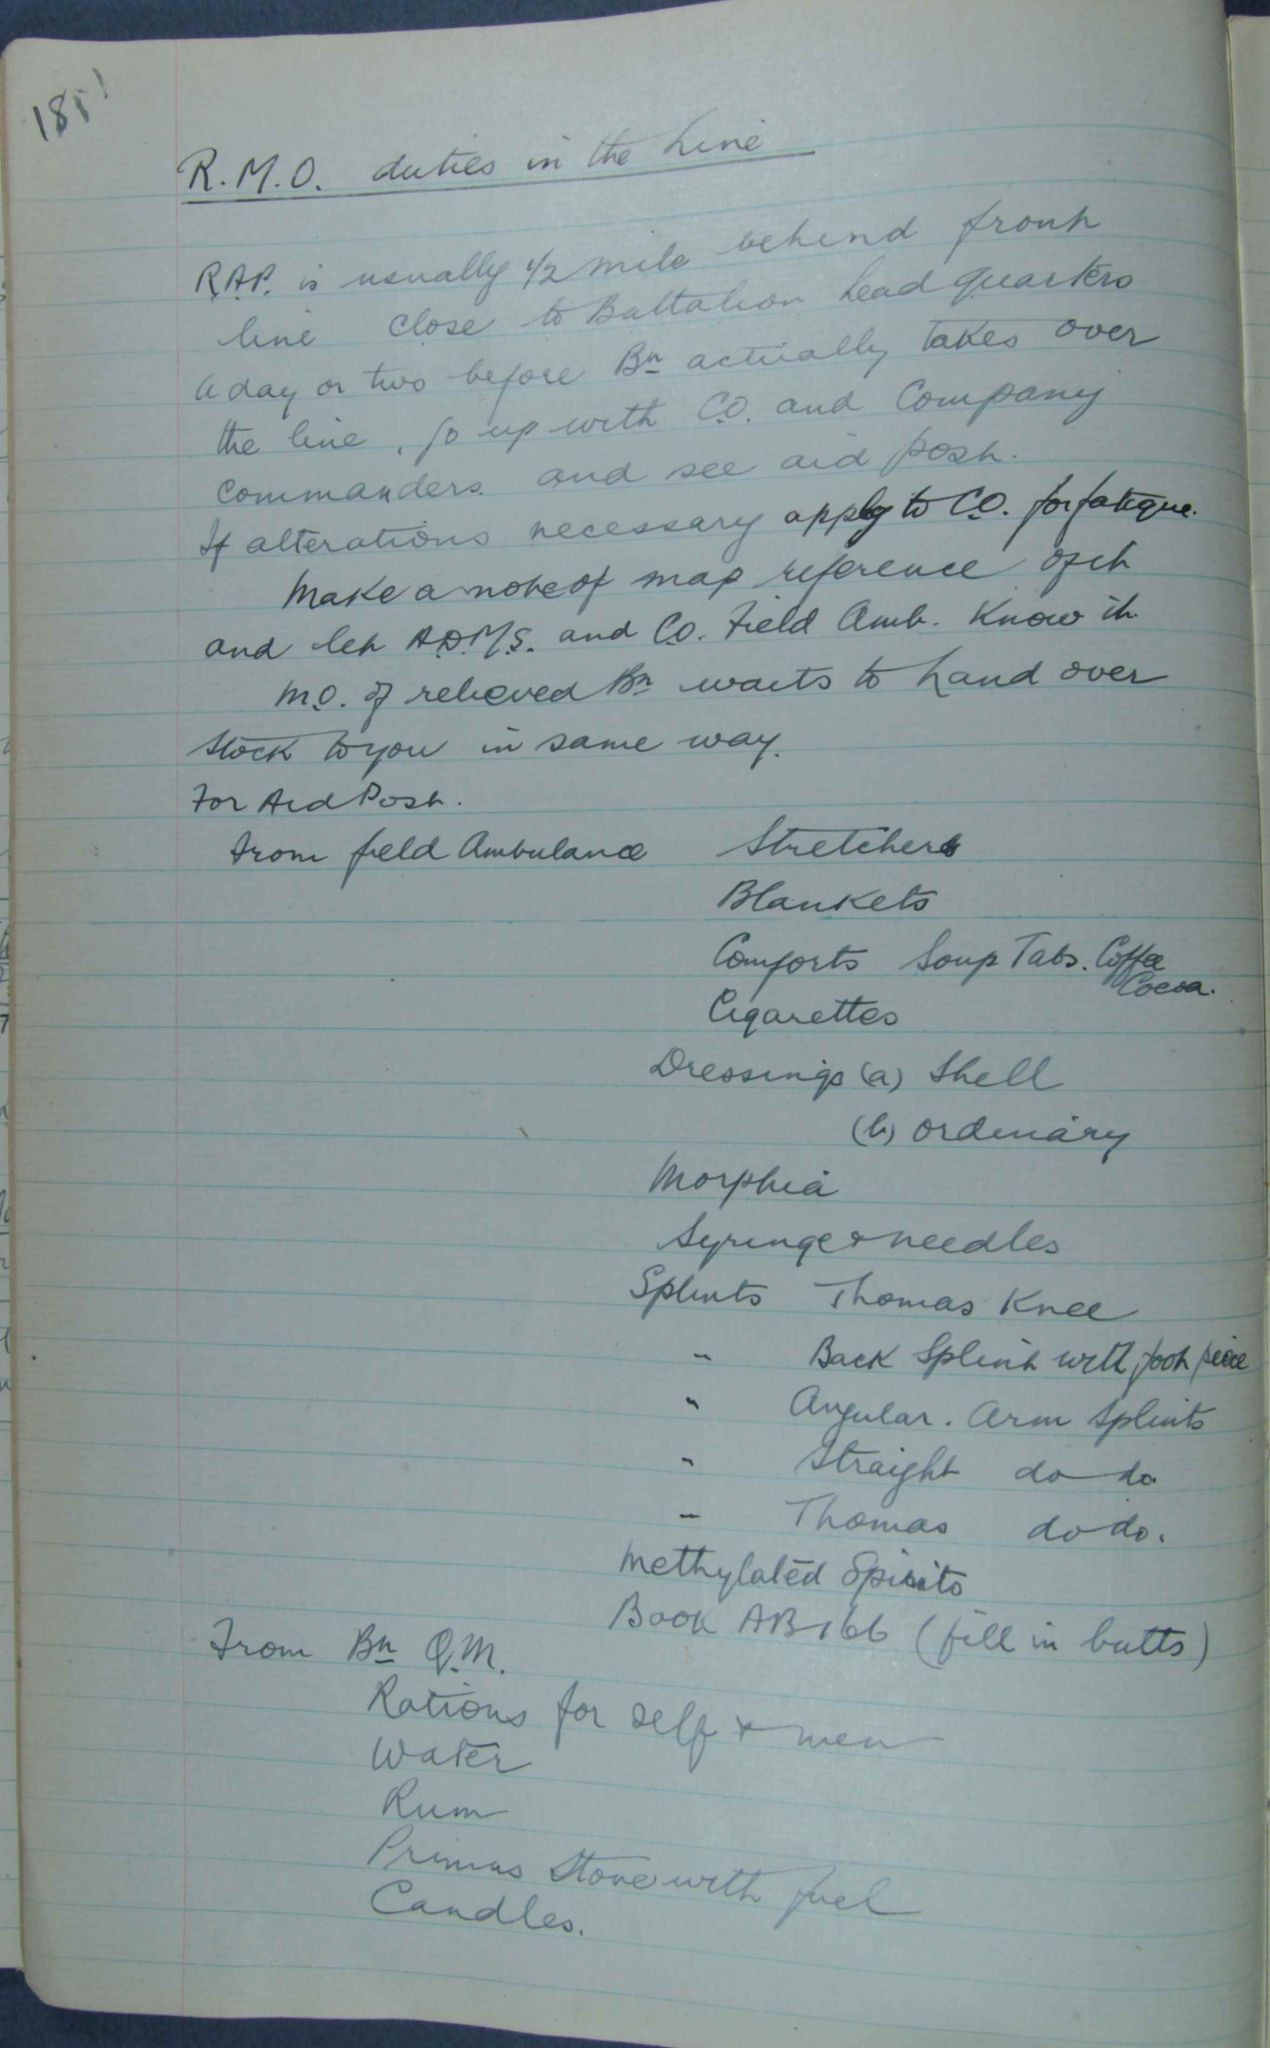 185
R.M.O. duties in the Line
R.A.P. is usually 1/2 mile behind front
line close to Battalion head quarters
A day or two before Bn actually takes over
the line, go up with C.O. and Company
Commanders. and see aid post.
If alterations necessary apply to C.O. for fatigue.
Make a note of map reference of it
and let A.D.M.S. and C.O. Field Amb. Know it
M.O. of relieved Bn waits to hand over
stock to you in same way.
For Aid Post.
From field Ambulance Stretchers
Blankets
Comforts Soup Tabs. Coffee
Cocoa.
Cigarettes
Dressings (a) Shell
(b) ordinary
Morphia
Syringe & needles
Splints Thomas Knee
" Back Splint with foot piece
" Angular. Arm Splints
" Straight do do
" Thomas do do.
Methylated Spirits
Book AB 166 (fill in butts)
From Bn Q.M.
Rations for self & men
Water
Rum
Primus Stove with fuel
Candles.